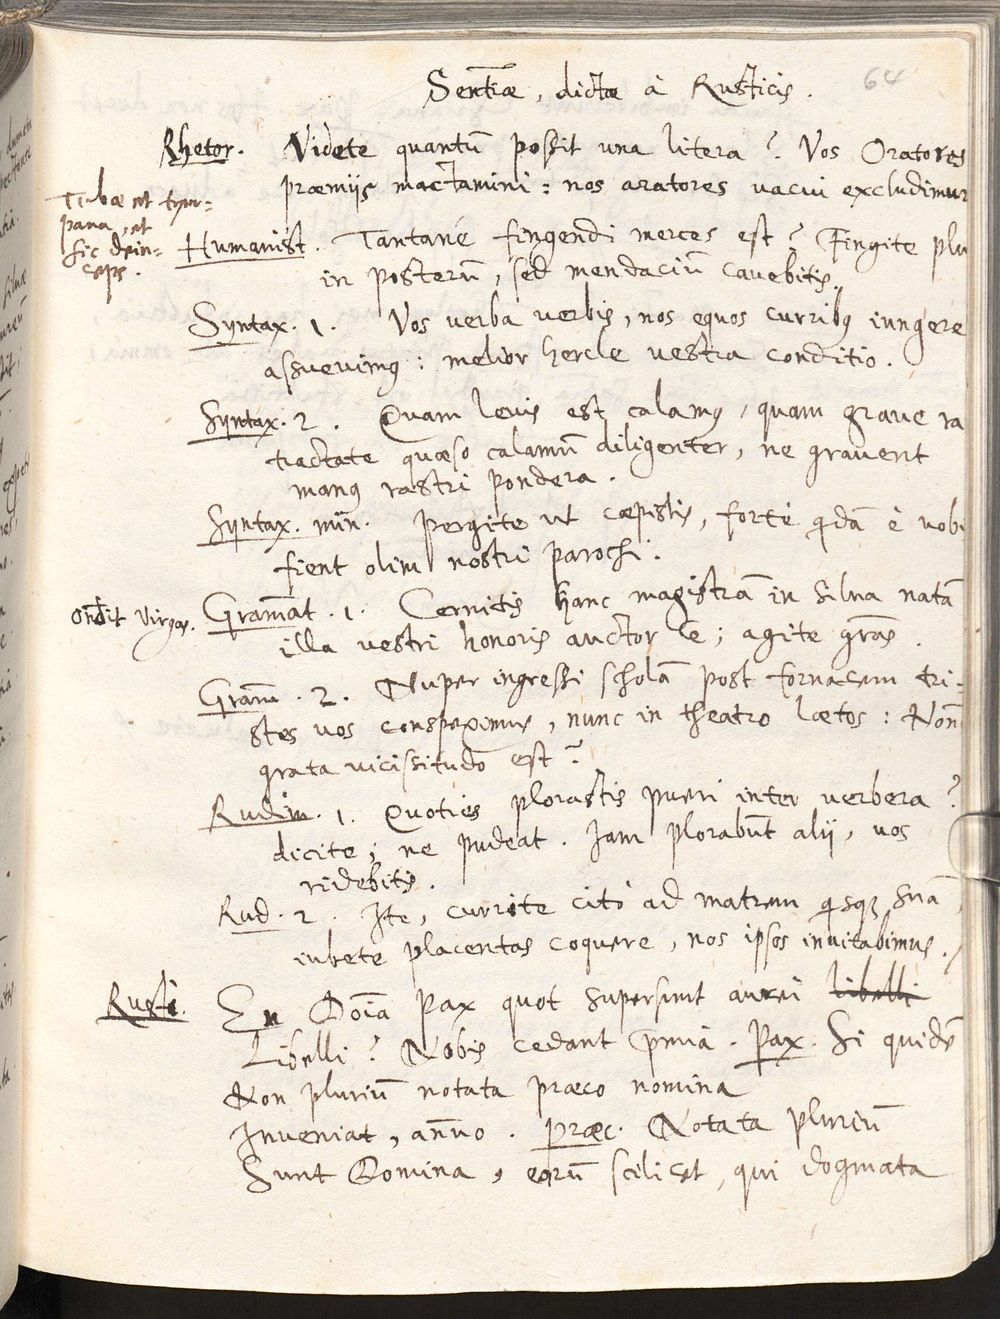 64
Sentiæ, dictæ à Rusticis.
Rhetor. Videte quantũ possit una litera? Vos Oratores
præmijs mactamini: nos aratores vacui excludimur
Tubæ et tym-
pana, et
sic dein-
ceps.
Humanist. Tantane fingendi merces est? Fingite plu
in posterũ, sed mendaciũ cavebitis.
Syntax. 1. Vos verba verbis, nos equos curribꝰ iungere
assuevimꝰ: melior hercle vestra conditio.
Syntax. 2. Quam levis est calamꝰ, quam grave ra
tractate quæso calamũ diligenter, ne gravent
manꝰ rastri pondera.
Syntax. min. Pergite ut cæpistis, forte qdã è vobi
fient olim nostri parochi.
Ondit Virgas.
Gramat. 1. Cernitis hanc magistrã in silua natã
illa vestri honoris auctor ẽ; agite grãs.
Gram̃. 2. Nuper ingressi scholã post fornacem tri-
stes vos conspeximus, nunc in theatro lætos: Noñ
grata vicissitudo est?
Rudim. 1. Quoties plorastis pueri inter verbera?
dicite; ne pudeat. Iam plorabũt alij, vos
ridebitis.
Rud. 2. Ite, currite citò ad matrem qsqꝫ suã,
iubete placentas coquere, nos ipsos invitabimus.
Rusti. En Dõia Pax quot supersunt aurei libelli
Libelli? Nobis cedant p̃mia. Pax. Si quidẽ
Non pluriũ notata præco nomina
Inveniat, añuo. Præc. Notata pluriũ
Sunt Nomina, eorũ scilicet, qui dogmata